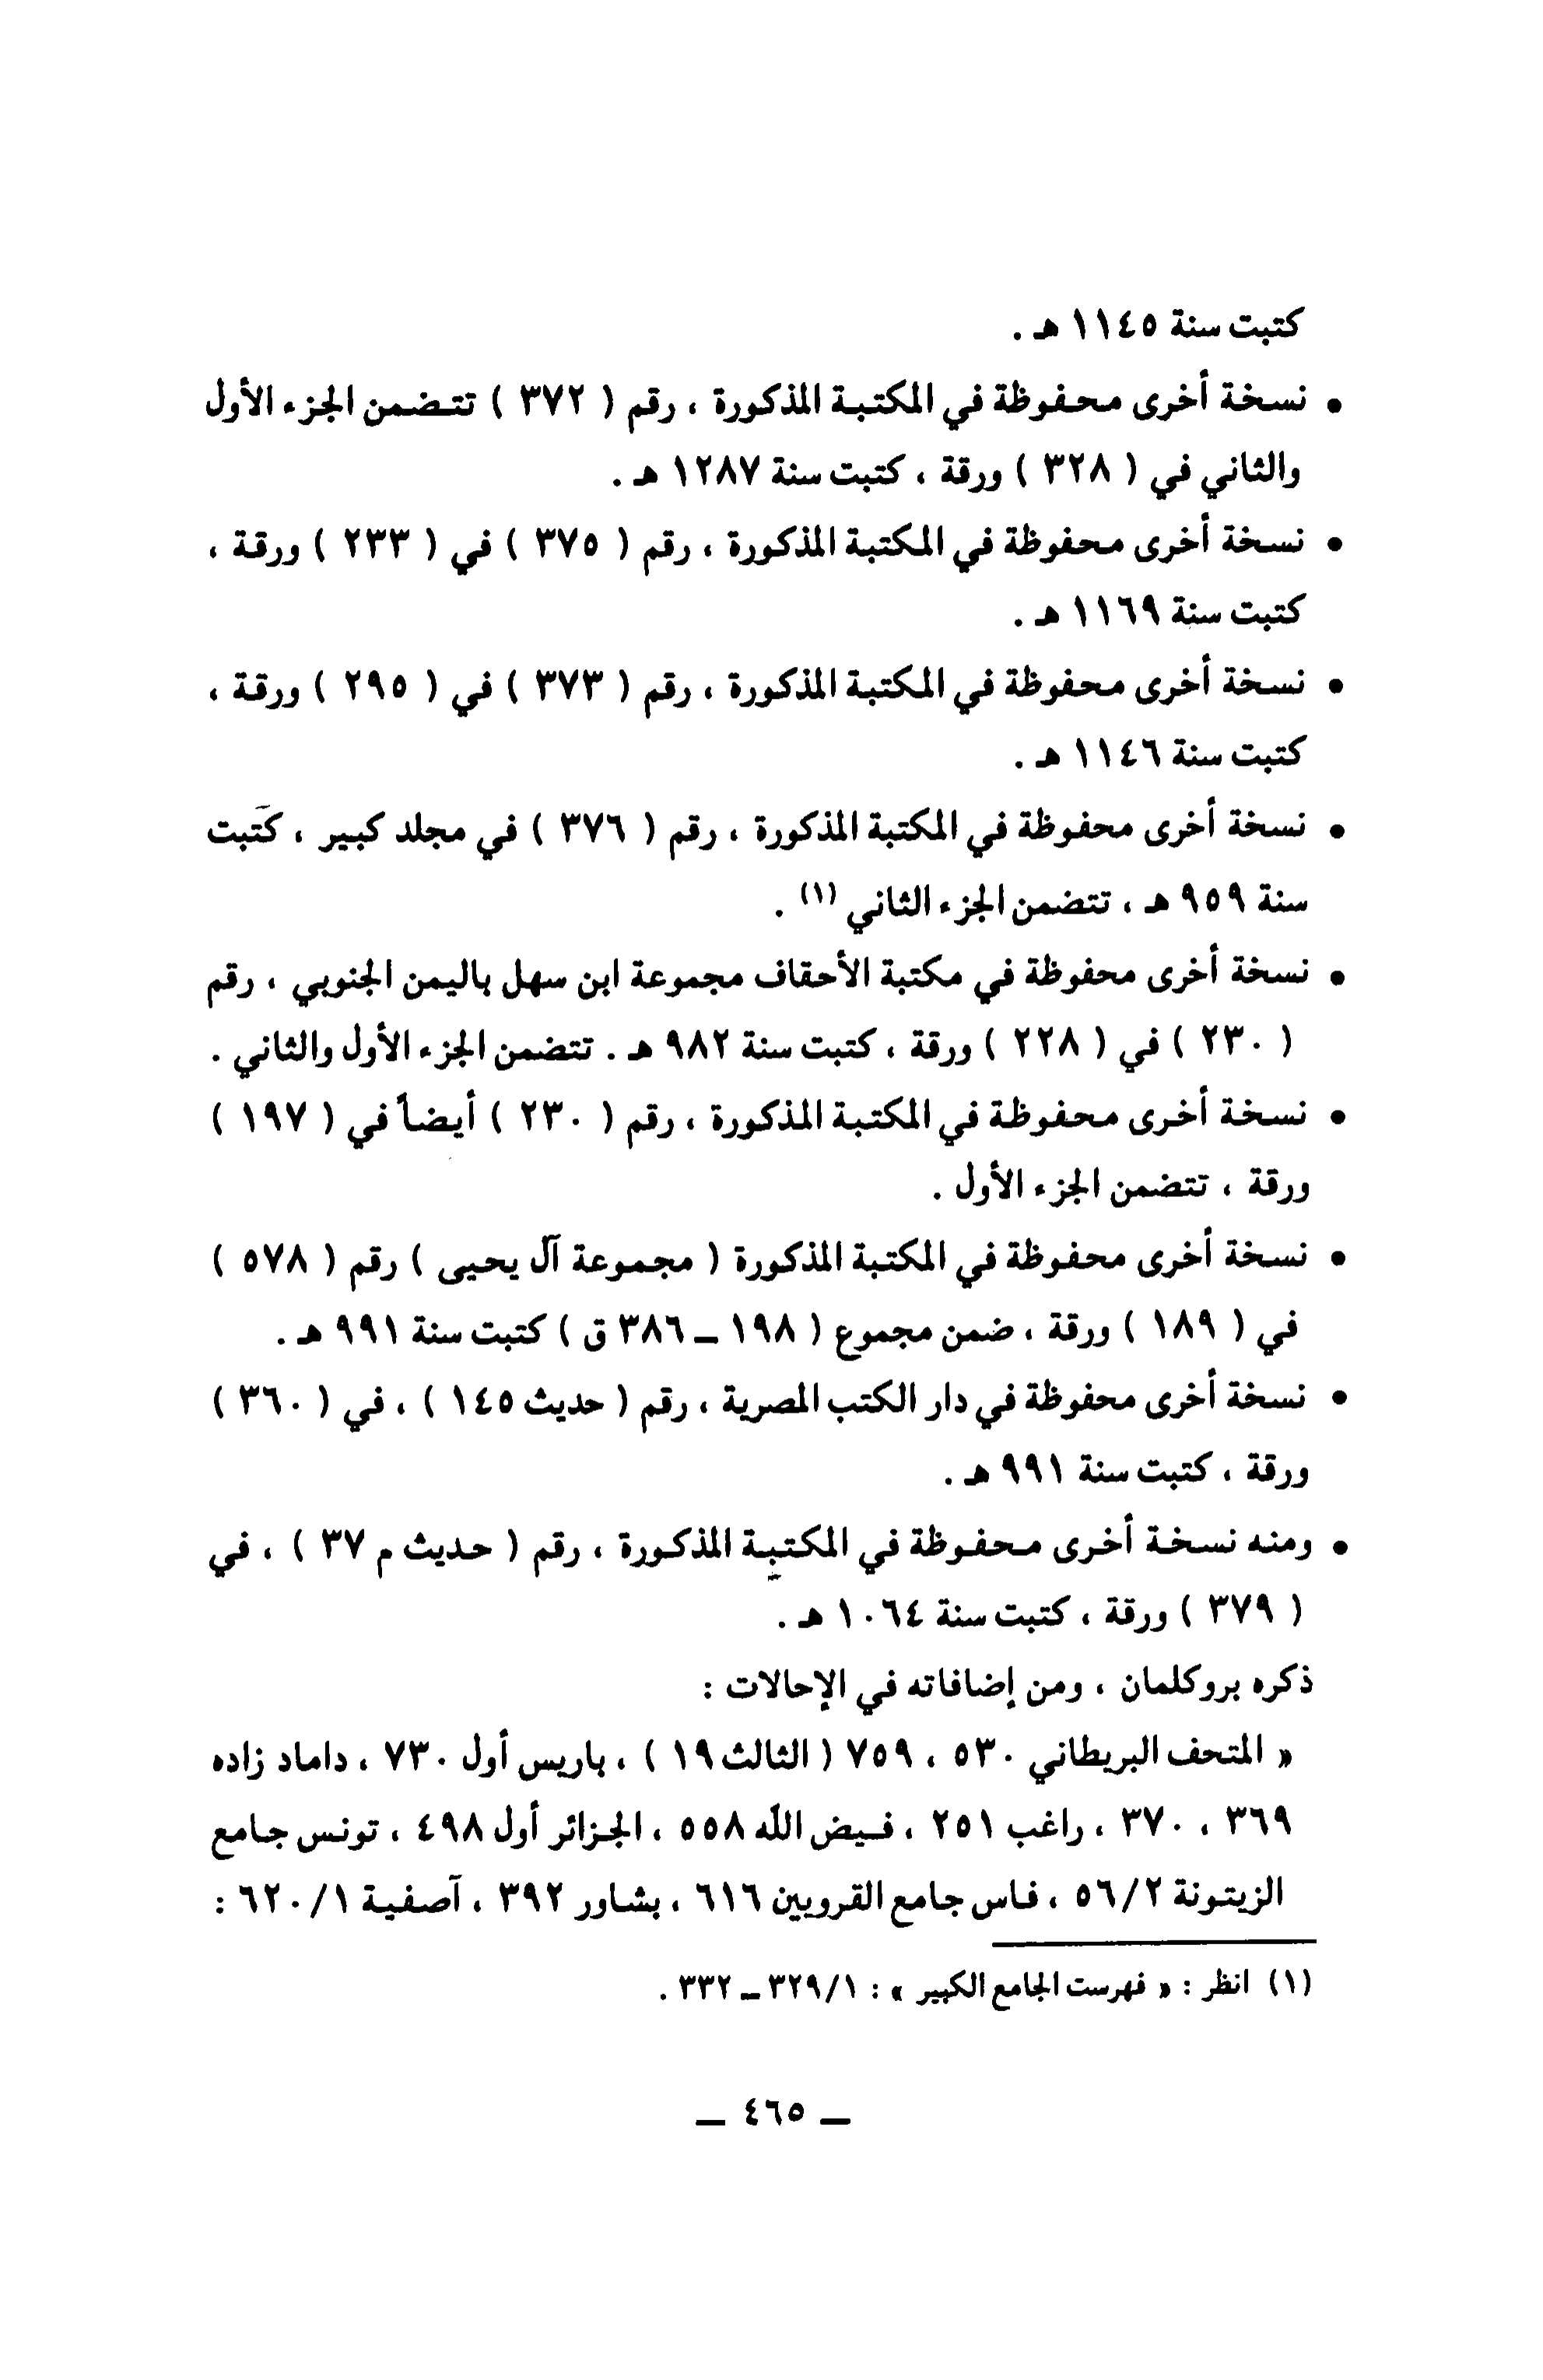 كتبت سنة ١١٤٥ هـ .
• نسخة أخرى محفوظة في المكتبة المذكورة ، رقم ( ٣٧٢ ) تتضمن الجزء الأول
والثاني في ( ٣٢٨ ) ورقة ، كتبت سنة ١٢٨٧ هـ .
• نسخة أخرى محفوظة في المكتبة المذكورة ، رقم ( ٣٧٥ ) في ( ٢٣٣ ) ورقة ،
كتبت سنة ١١٦٩ هـ .
• نسخة أخرى محفوظة في المكتبة المذكورة ، رقم ( ٣٧٣ ) في ( ٢٩٥ ) ورقة ،
كتبت سنة ١١٤٦ هـ .
• نسخة أخرى محفوظة في المكتبة المذكورة ، رقم ( ٣٧٦ ) في مجلد كبير ، كتبت
سنة ٩٥٩ هـ ، تتضمن الجزء الثاني (١) .
• نسخة أخرى محفوظة في مكتبة الأحقاف مجموعة ابن سهل باليمن الجنوبي ، رقم
( ٢٣٠ ) في ( ٢٢٨ ) ورقة ، كتبت سنة ٩٨٢ هـ . تتضمن الجزء الأول والثاني .
• نسخة أخرى محفوظة في المكتبة المذكورة ، رقم ( ٢٣٠ ) أيضاً في ( ١٩٧ )
ورقة ، تتضمن الجزء الأول .
• نسخة أخرى محفوظة في المكتبة المذكورة ( مجموعة آل يحيى ) رقم ( ٥٧٨ )
في ( ١٨٩ ) ورقة ، ضمن مجموع ( ١٩٨ - ٣٨٦ ق ) كتبت سنة ٩٩١ هـ .
• نسخة أخرى محفوظة في دار الكتب المصرية ، رقم ( حديث ١٤٥ ) ، في ( ٣٦٠ )
ورقة ، كتبت سنة ٩٩١ هـ .
• ومنه نسخة أخرى محفوظة في المكتبة المذكورة ، رقم ( حديث م ٣٧ ) ، في
( ٣٧٩ ) ورقة ، كتبت سنة ١٠٦٤ هـ .
ذكره بروكلمان ، ومن إضافاته في الإحالات :
« المتحف البريطاني ٥٣٠ ، ٧٥٩ ( الثالث ١٩ ) ، باريس أول ٧٣٠ ، داماد زاده
٣٦٩ ، ٣٧٠ ، راغب ٢٥١ ، فيض الله ٥٥٨ ، الجزائر أول ٤٩٨ ، تونس جامع
الزيتونة ٥٦/٢ ، فاس جامع القرويين ٦١٦ ، بشاور ٣٩٢ ، آصفية ٦٢٠/١ :
(١) انظر : « فهرست الجامع الكبير » : ٣٢٩/١ - ٣٣٢ .
- ٤٦٥ -